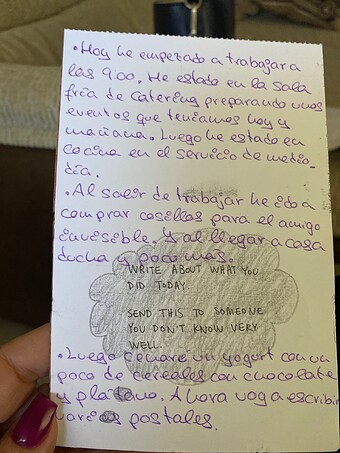 • Hoy he empezado a trabajar a
las 9:00. He estado en la sala
fría de catering preparando unos
eventos que teníamos hoy y
mañana. Luego he estado en
cocina en el servicio de medio-
día.
• Al salir de trabajar he ido a
comprar cosillas para el amigo
invisible. Y al llegar a casa
ducha y poco más.
WRITE ABOUT WHAT YOU
DID TODAY.
SEND THIS TO SOMEONE
YOU DON'T KNOW VERY
WELL.
• Luego cenaré un yogurt con un
poco de cereales con chocolate
y plátano. Ahora voy a escribir
varias postales.